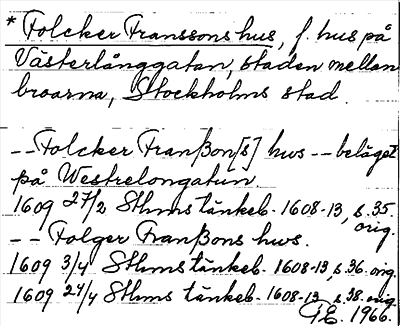 * Folcker Franssons hus, f. hus på
Västerlånggatan, staden mellan
broarna, Stockholms stad.
-- Folcker Franßon[s] hws -- beläget
på Westrelongatun.
1609 27/2 Sthms tänkeb. 1608-13, s. 35. orig.
-- Folger Franßons hws.
1609 3/4 Sthms tänkeb. 1608-13, s. 36. orig.
1609 24/4 Sthms tänkeb. 1608-13, s. 38. orig.
G.E. 1966.